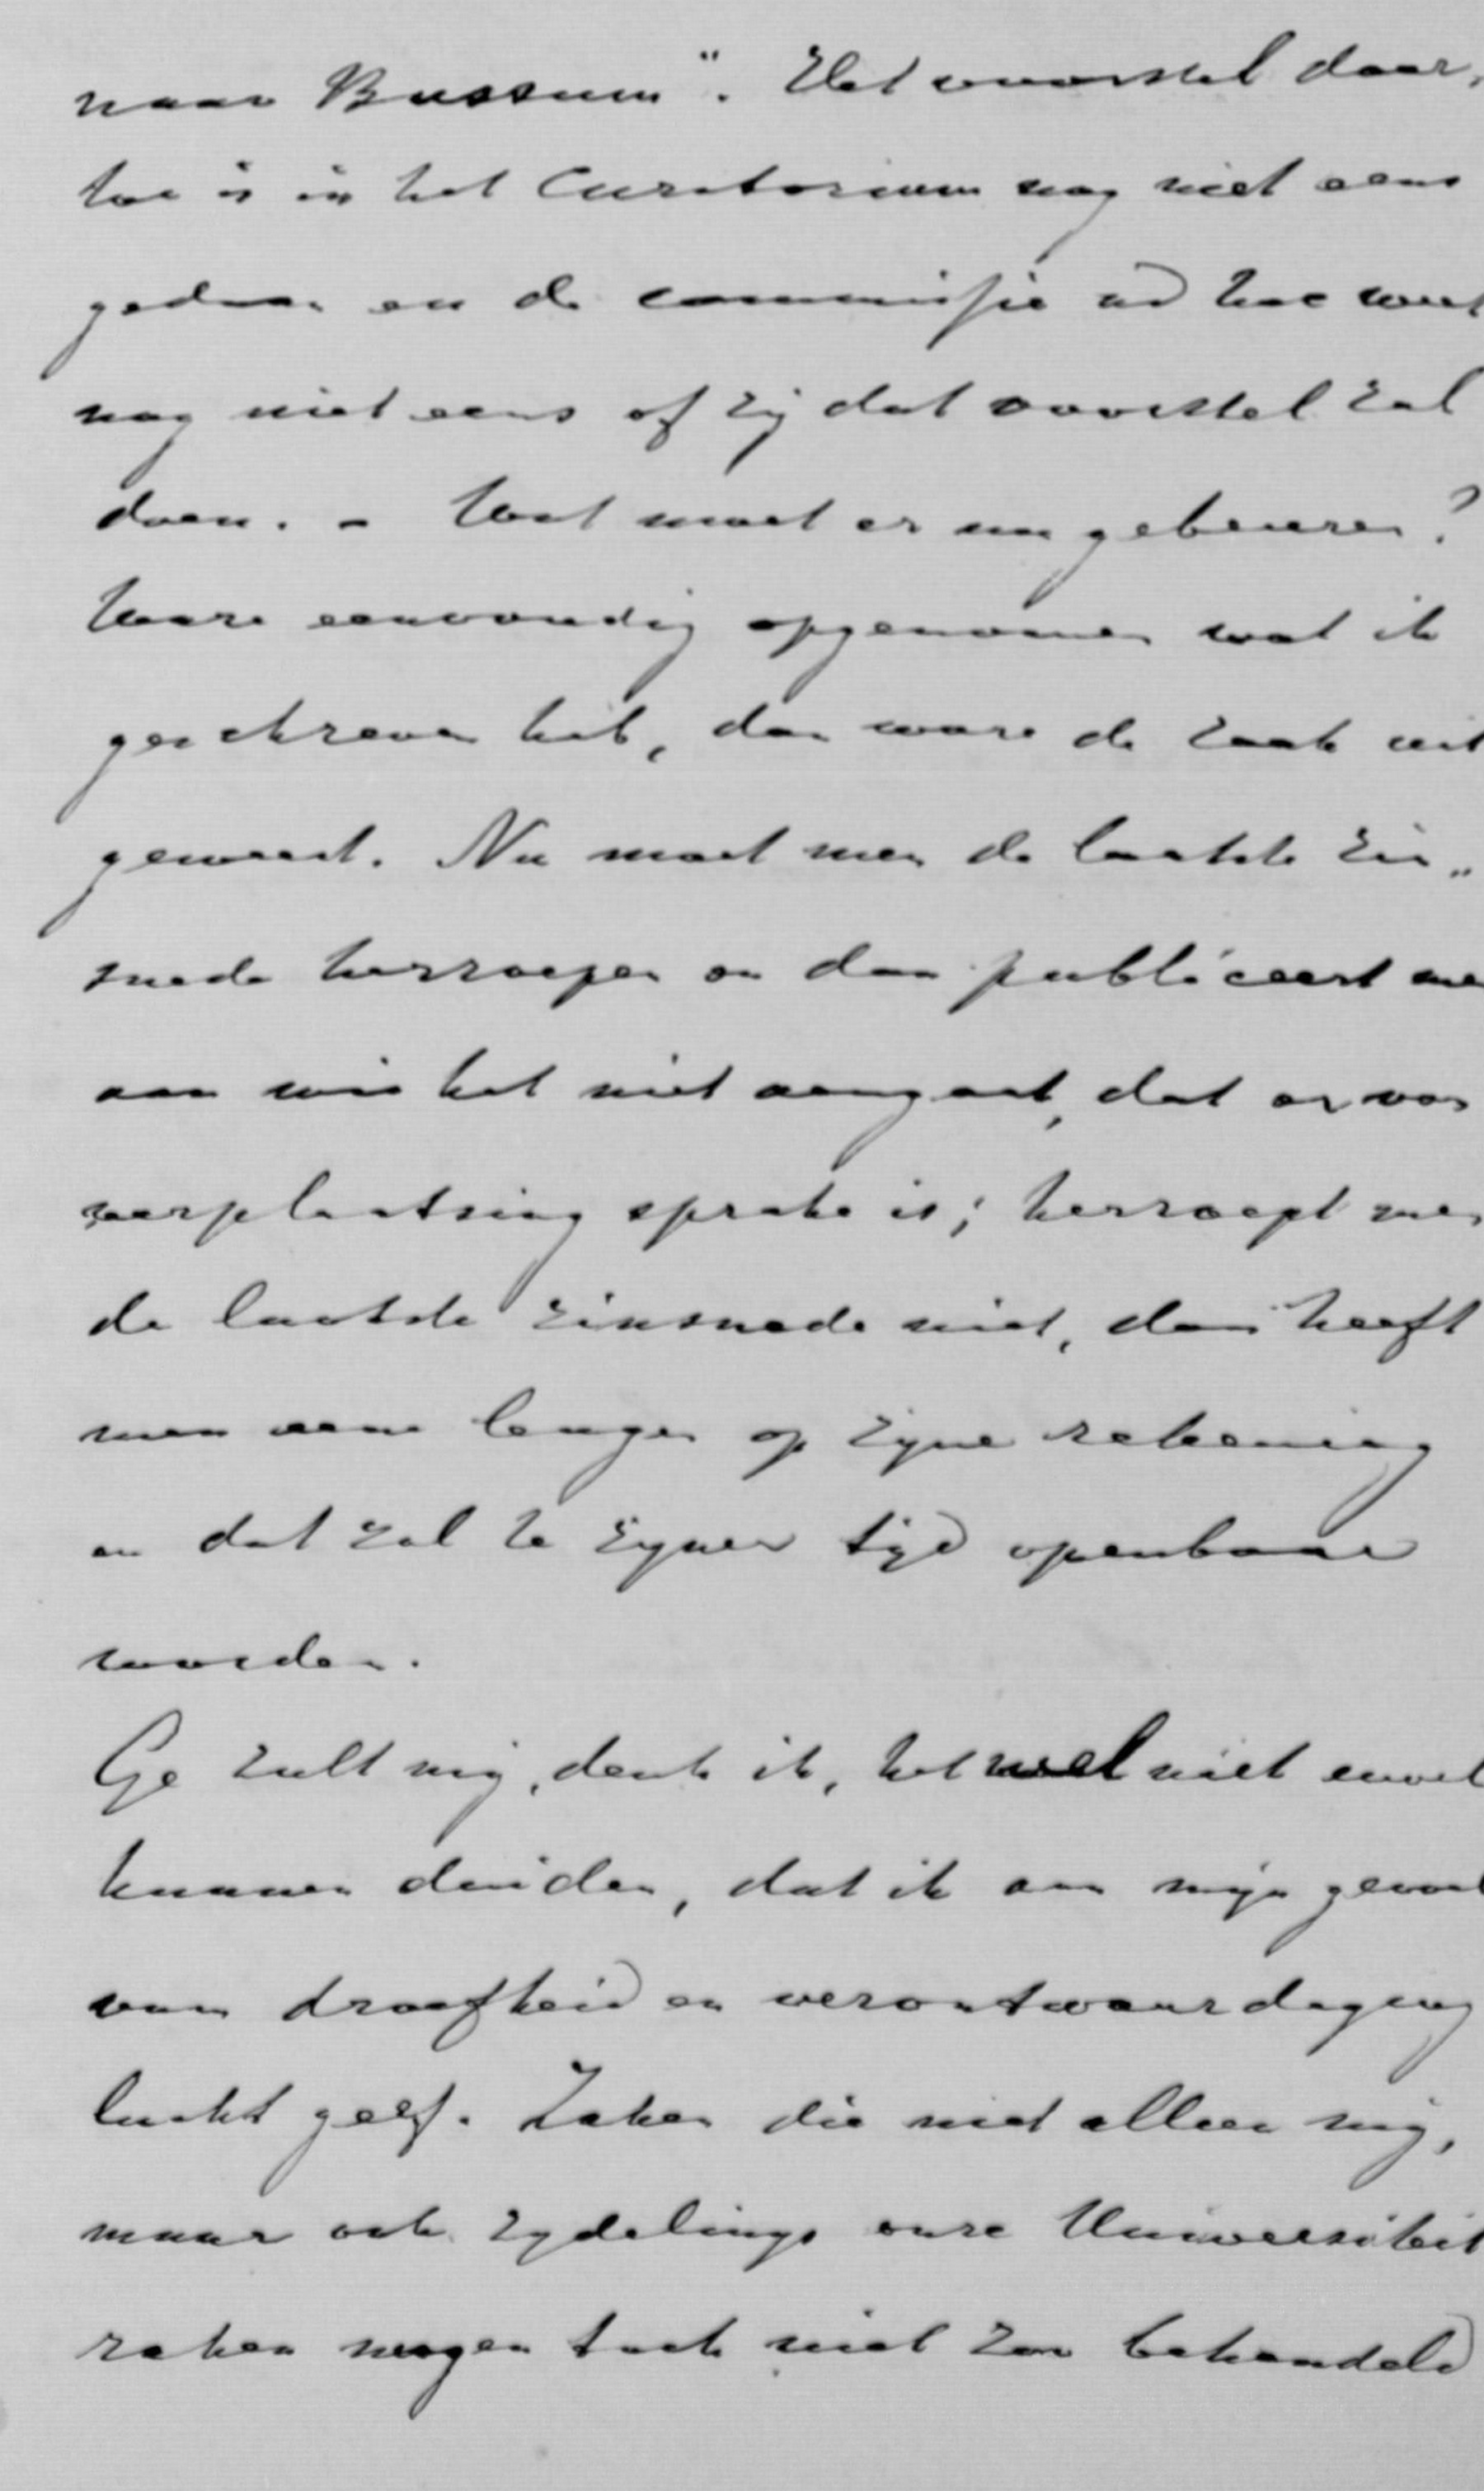 naar Bussum". Het voorstel daar„
toe is in het Curatorium nog niet eens
gedaan en de commissie ad hoc weet
nog niet eens of zij dat voorstel zal
doen. - Wat moet er nu gebeuren?
Ware eenvoudig opgenomen wat ik
geschreven heb, dan ware de zaak uit
geweest. Nu moet men de laatste zin„
snede herroepen en dan publiceert me
aan wie het niet aangaat, dat er van
verplaatsing sprake is; herroept men
de laatste zinsnede niet, dan heeft
men eene leugen op zijne rekening
en dat zal te zijner tijd openbaar
worden.
Ge zult mij, denk ik, het wel niet euvel
kunnen duiden, dat ik aan mijn gevoel
van droefheid en verontwaardiging
lucht geef. Zaken die niet alleen mij,
maar ook zijdelings onze Universiteit
raken mogen toch niet zoo behandeld